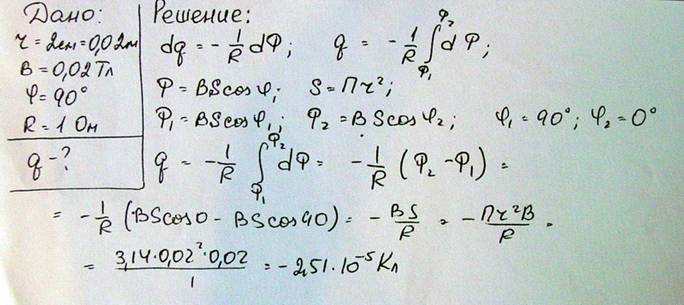 Дано:
r = 2см = 0,02м
B = 0,02 Тл
φ = 90°
R = 1 Ом
q - ?
Решение:
dq = - 1/R dФ; q = - 1/R ∫_{Ф₁}^{Ф₂} dФ;
Ф = BS cos φ; S = Пr²;
Ф₁ = BS cos φ₁; Ф₂ = BS cos φ₂; φ₁ = 90°; φ₂ = 0°
q = - 1/R ∫_{Ф₁}^{Ф₂} dФ = - 1/R (Ф₂ - Ф₁) =
= - 1/R (BS cos 0 - BS cos 90) = - BS/R = - Пr²B/R =
= 3,14·0,02²·0,02/1 = -251·10⁻⁵ Кл